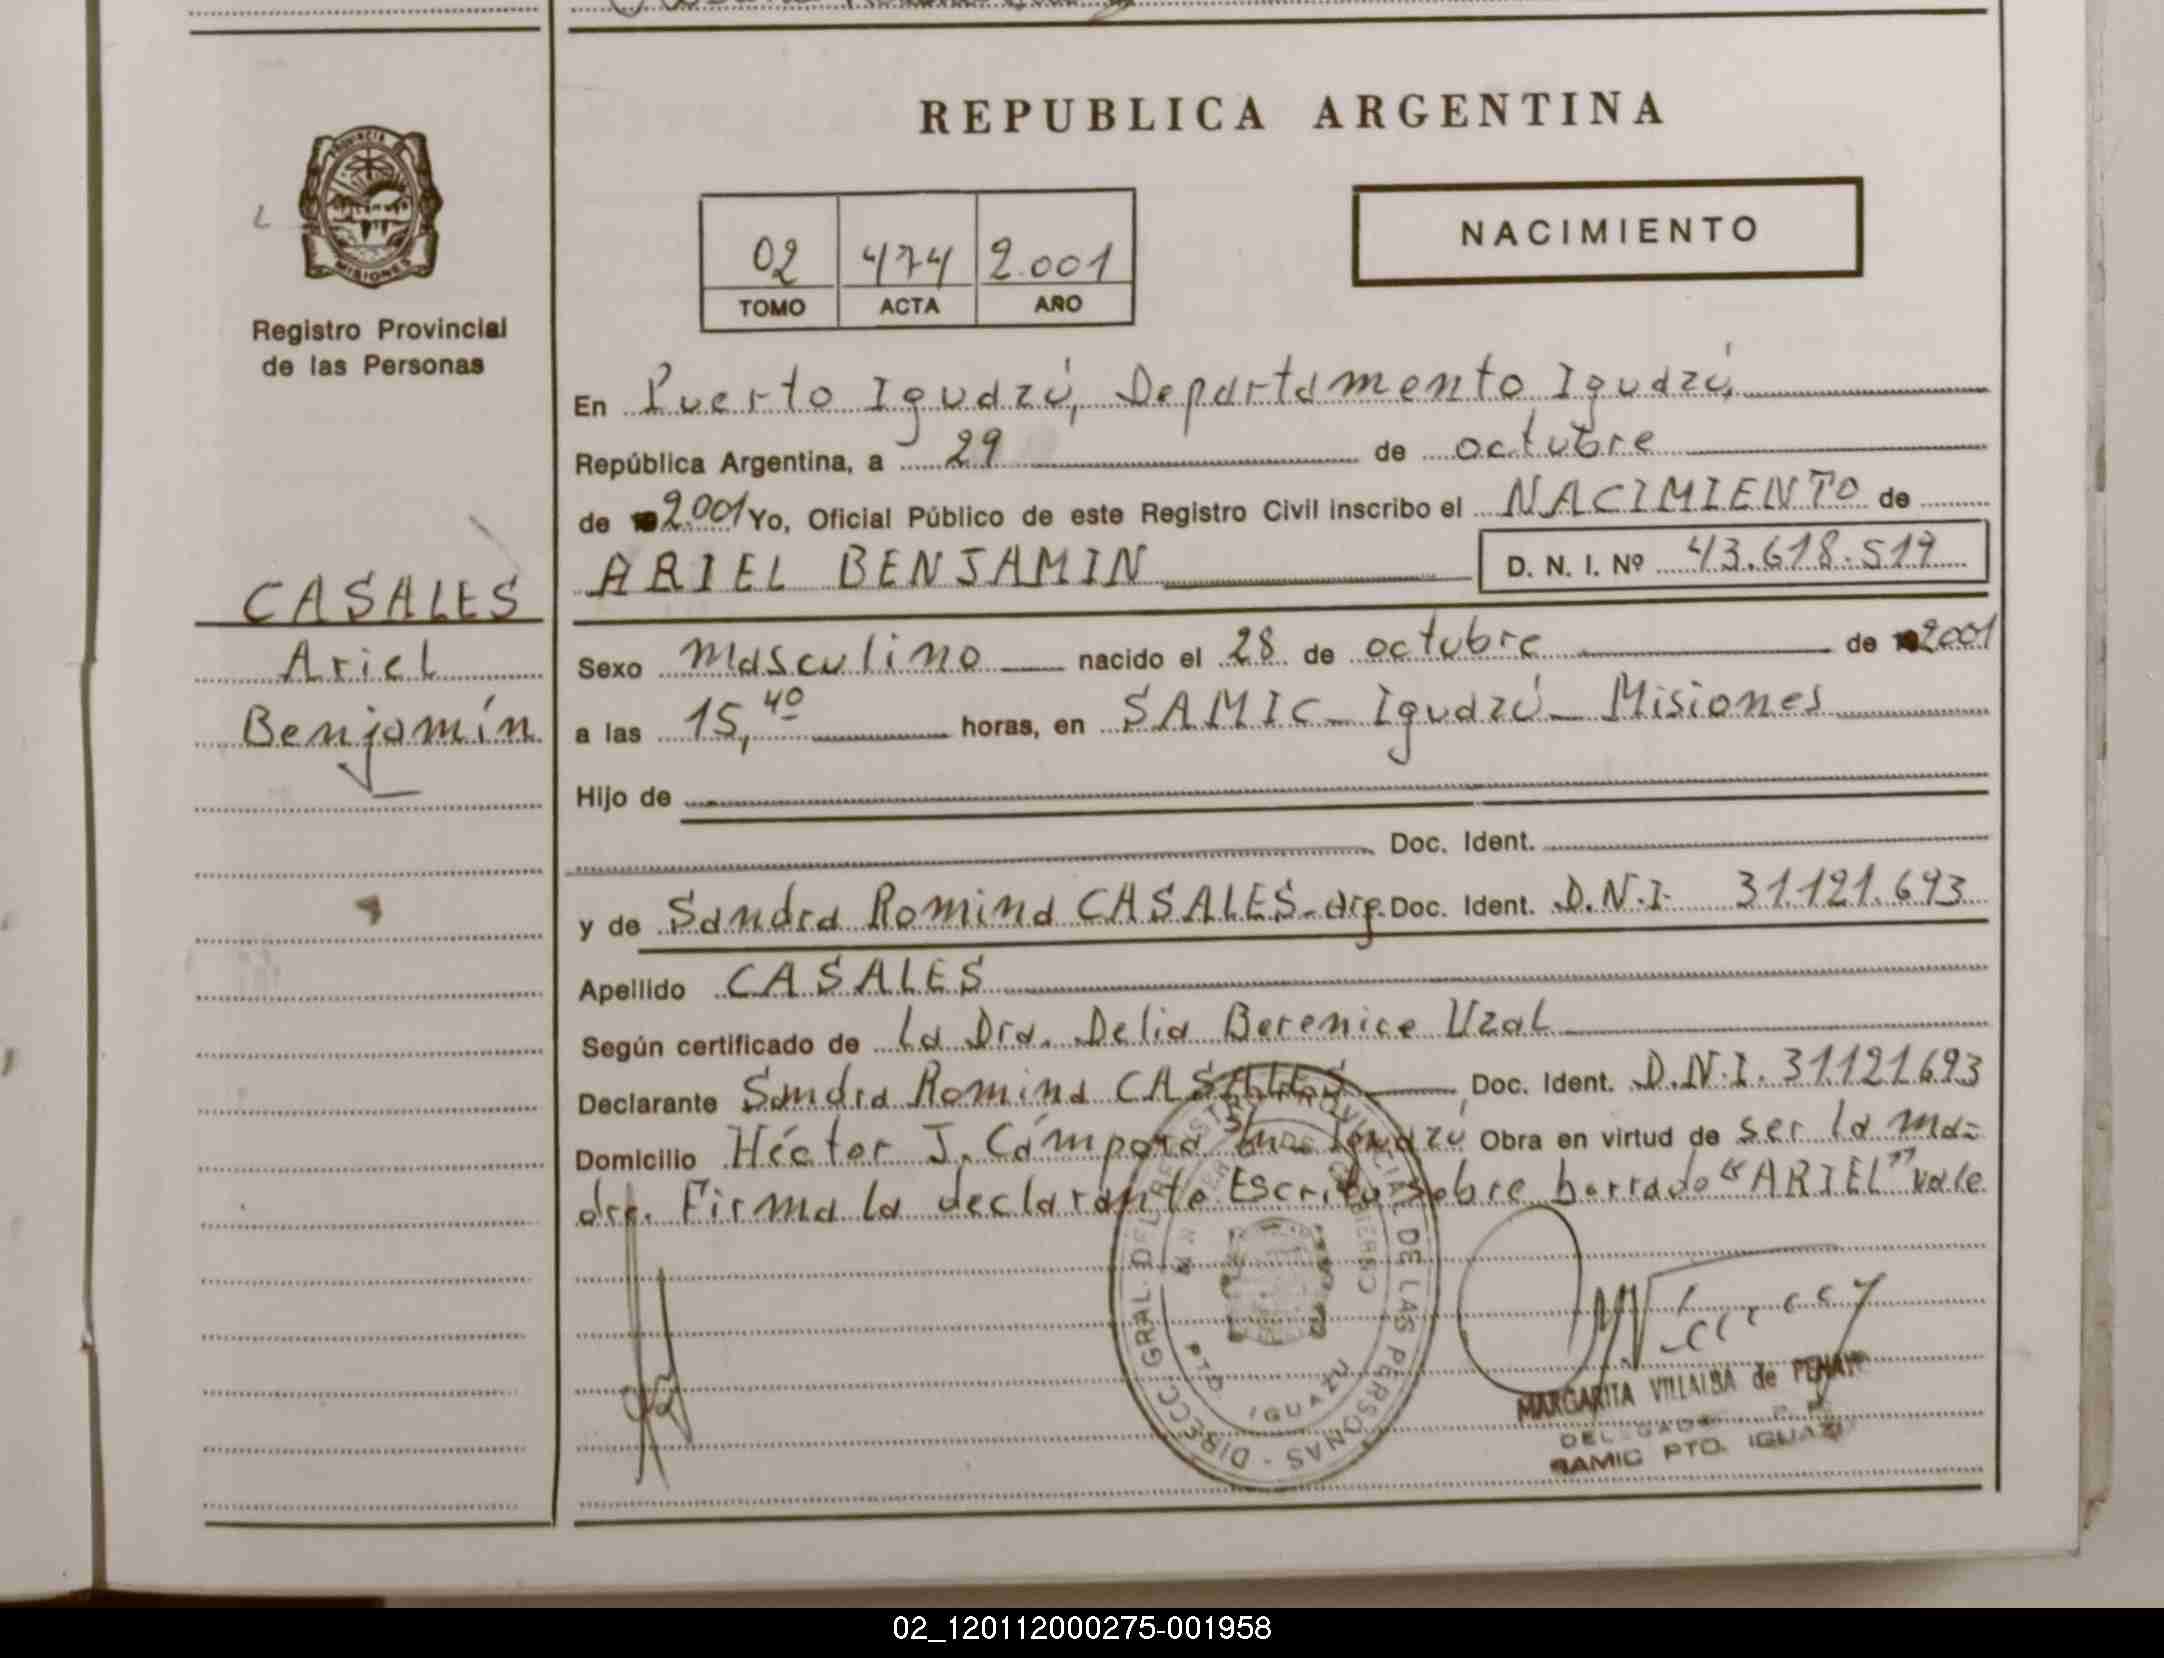 REPUBLICA ARGENTINA
NACIMIENTO
PROVINCIA DE
MISIONES
Registro Provincial
de las Personas
02 474 2.001
TOMO ACTA AÑO
En Puerto Iguazú, Departamento Iguazú,
República Argentina, a 29 de octubre
de 2.001 Yo, Oficial Público de este Registro Civil inscribo el NACIMIENTO de
ARIEL BENJAMIN D. N. I. Nº 43.618.519
CASALES
Ariel
Benjamín
Sexo masculino nacido el 28 de octubre de 2001
a las 15,40 horas, en SAMIC - Iguazú - Misiones
Hijo de
Doc. Ident.
y de Sandra Romina CASALES - arg. Doc. Ident. D.N.I. 31.121.693
Apellido CASALES
Según certificado de la Dra. Delia Berenice Uzal
Declarante Sandra Romina CASALES Doc. Ident. D.N.I. 31.121.693
Domicilio Héctor J. Cámpora S/n Iguazú Obra en virtud de ser la ma=
dre. Firma la declarante Escrito sobre borrado "ARIEL" vale
DIRECC. GRAL. DEL REGISTRO PROVINCIAL DE LAS PERSONAS
PTO IGUAZU
MARGARITA VILLALBA de
SAMIC PTO. IGUAZU
02_120112000275-001958